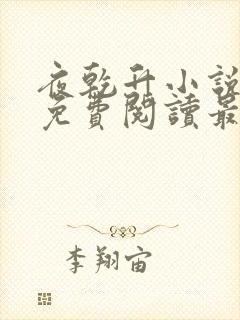 夜乾升小說
免費閱讀最
李翔宙